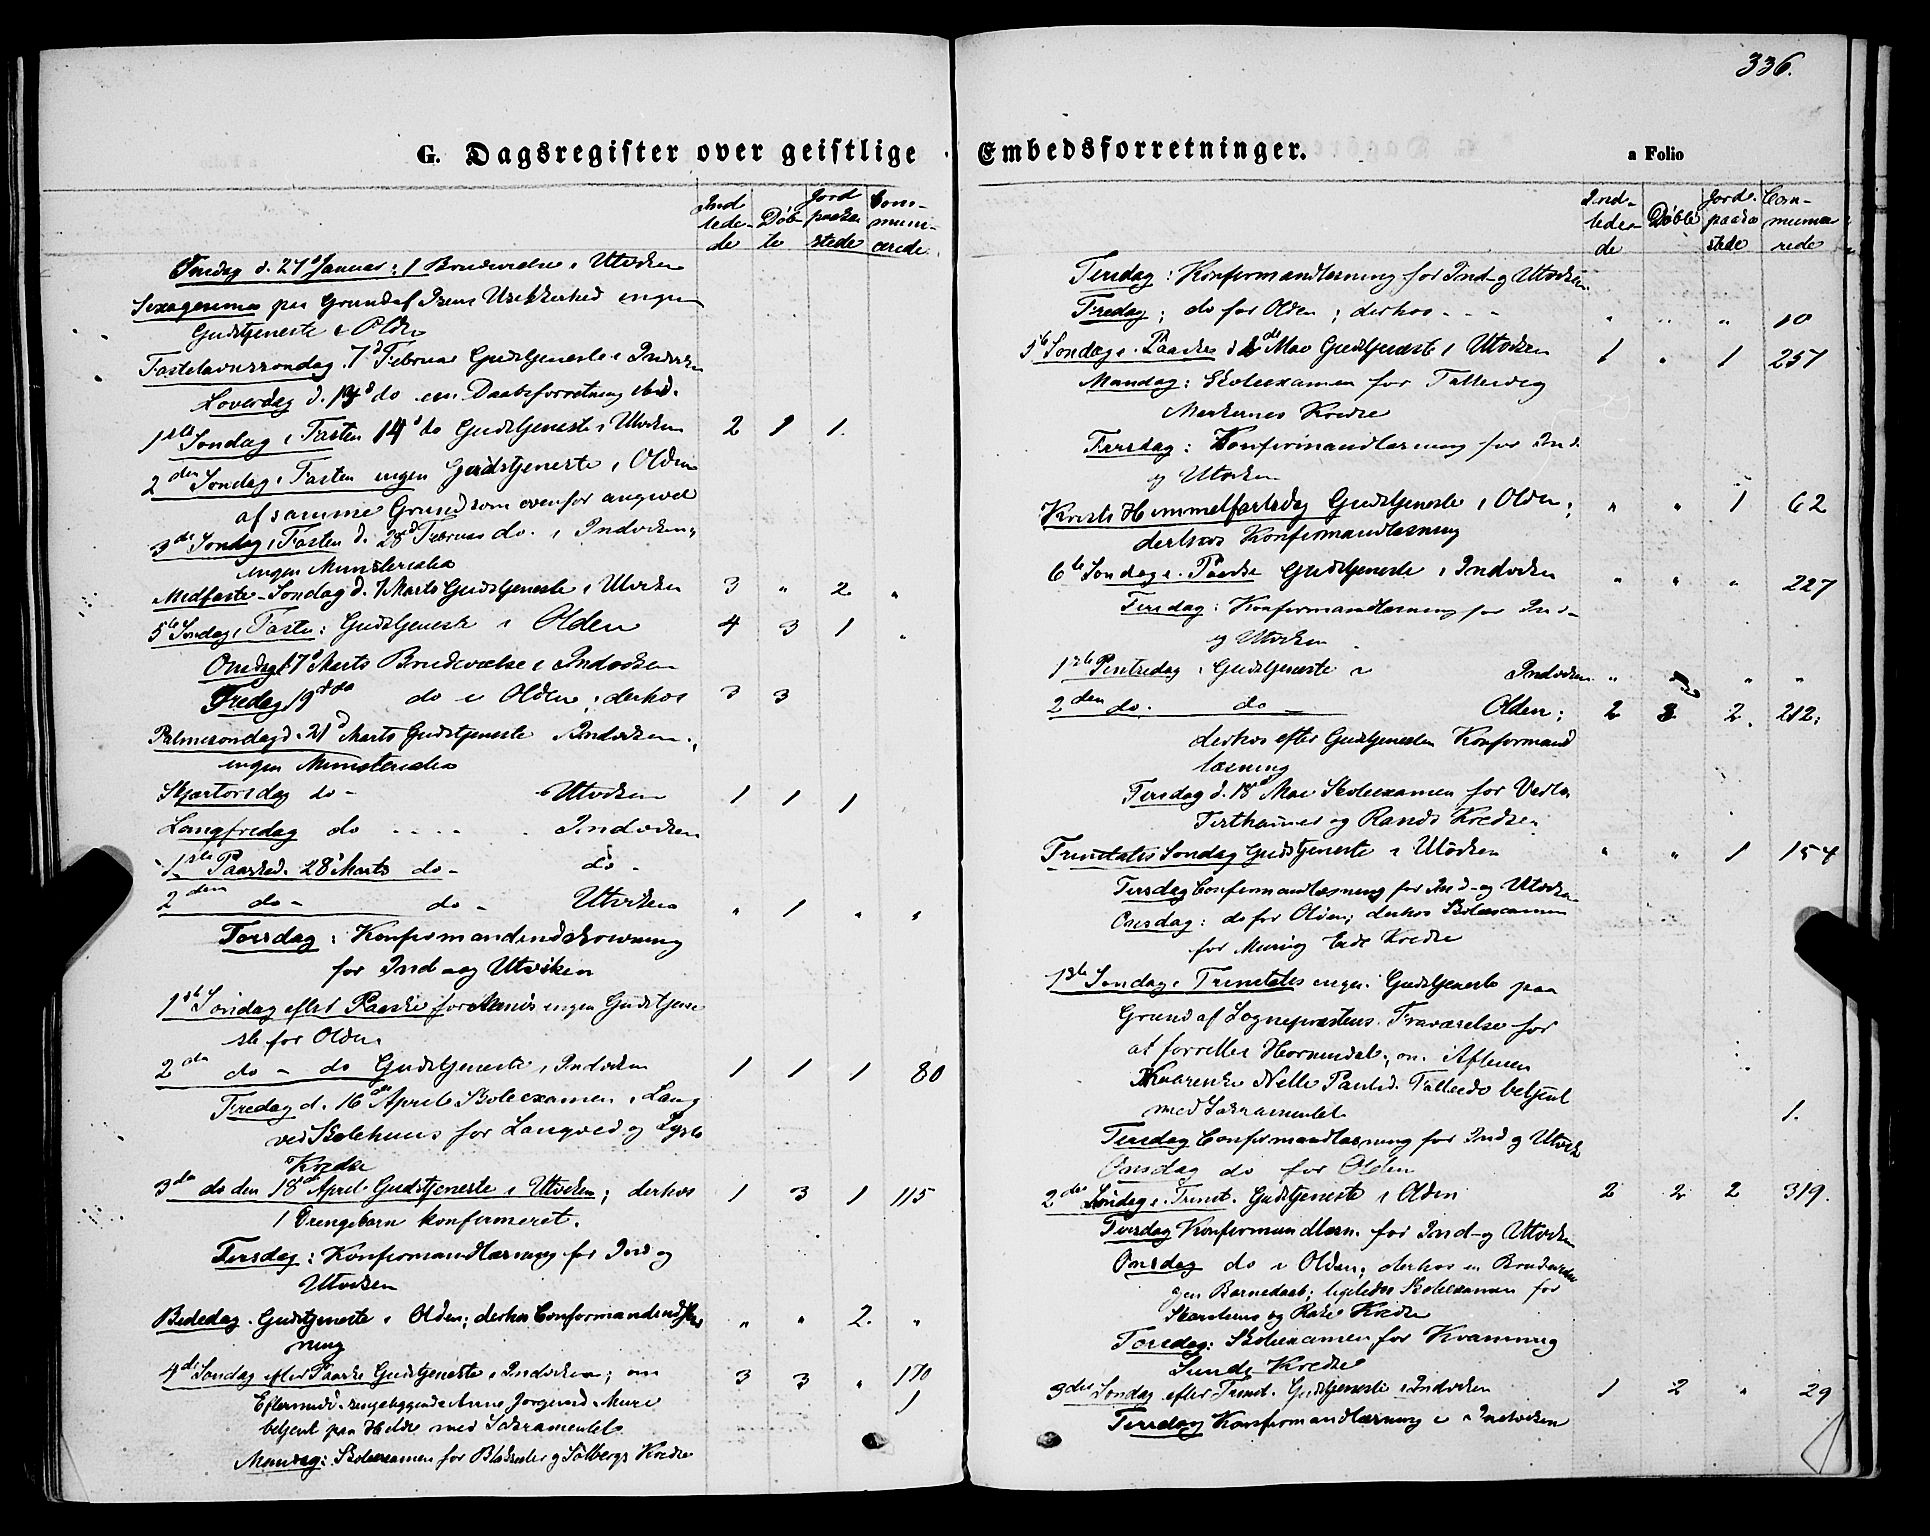 336.
G. Dagsregister over geistlige Embedsforretninger.
a Folio
Ind-
lede-
de
Døb-
te
Jord
paaka
stede
Com-
muni-
cerede
Onsdag d. 27d Januar: 1 Brudevielse i Utviken
Sexagesima paa Grund af Isens Usikkerhed ingen
Gudstjeneste i Olden
Fastelavnssøndag 7d Februar Gudstjeneste i Indviken
Løverdag d. 13d do en Daabsforretning ibid.
1ste Søndag i Fasten 14d do Gudstjeneste i Utviken 2 1 1.
2den Søndag i Fasten ingen Gudstjeneste i Olden
af samme Grund som ovenfor angivet
3die Søndag i Fasten d. 28d Februar do. i Indviken;
ingen Ministerialia
Midfaste-Søndag d. 7 Marts Gudstjeneste i Utviken 3 " 2 "
5te Søndag i Fasten: Gudstjeneste i Olden 4 3 1 "
Onsdag 17d Marts Brudevielse i Indviken
Fredag 19d do do i Olden; derhos 3 3
Palmesøndag d. 21d Marts Gudstjeneste Indviken;
ingen Ministerialia
Skjærtorsdag do - Utviken 1 1 1
Langfredag do Indviken
1ste Paasked. 28d Marts do - do -
2den do - do - Utviken " 1 " "
Torsdag: Konfirmandindskrivning
for Ind og Utviken
1ste Søndag efter Paaske formedelst ingen Gudstjene
ste for Olden
2den do - do Gudstjeneste i Indviken 1 1 1 80
Fredag d. 16de April Skoleexamen i Lang
ved Skolehuus for Langved og
Kredse
3die do den 18de April Gudstjeneste i Utviken; derhos 1 3 1 115
1 Trængebarn konfirmeret.
Tirsdag: Konfirmandlæsning for Ind og
Utviken
Bededag. Gudstjeneste i Olden; derhos Confirmandindskriv " " 2. "
ning
4de Søndag efter Paaske Gudstjeneste i Indviken; om 3 3 " 170
Eftermidd. sengeliggende Anne Jørgensd. Muri 1
betjent paa Hilde med Sakramentet
Mandag: Skoleexamen for og Solbergs Kredse
Ind-
lede-
de
Døbte
Jord-
paaka
stede
Com-
munice
rede
Tirsdag: Konfirmandlæsning for Ind- og Utviken
Fredag: do for Olden; derhos - - - " " " 10
5te Søndag e. Paaske d. 2d Mai Gudstjeneste i Utviken 1 " 1 257
Mandag: Skoleexamen for
Kredse
Tirsdag: Konfirmandlæsning for Ind
og Utviken
Kristi Himmelfartsdag Gudstjeneste i Olden; " " 1 62
derhos Konfirmandlæsning
6te Søndag e. Paaske Gudstjeneste i Indviken " " " 227
Tirsdag: Konfirmandlæsning for Ind-
og Utviken
1ste Pintsedag: Gudstjeneste i Indviken " " "
2den do. do Olden; 2 3 2 212;
derhos efter Gudstjenesten Konfirmand
læsning
Tirsdag d. 18d Mai Skoleexamen for
og Kredse
Trinitatis Søndag Gudstjeneste i Utviken " " 1 154
Tirsdag Confirmandlæsning for Ind- og Utviken
Onsdag: do for Olden; derhos Skoleexamen
for Muri og Kredse
1ste Søndag e. Trinitatis ingen Gudstjeneste paa
Grund af Sognepræstens Fraværelse for
at forrette Hornindal; om Aftenen
Nelle Paulsd. betjent
med Sakramentet 1.
Tirsdag Confirmandlæsning for Ind og Utvik
Onsdag do for Olden
2den Søndag e. Trinit. Gudstjeneste i Olden 2 2 2 319.
Tirsdag Konfirmandlæsn. for Ind- og Utviken
Onsdag do i Olden; derhos en Brudevielse
og en Barnedaab; ligeledes Skoleexamen for
og Kredse
Torsdag: Skoleexamen for Kvamme og
Sunde Kredse
3die Søndag efter Trinit. Gudstjeneste i Indviken 1 2 " 29
Tirsdag Konfirmandlæsning i Indviken